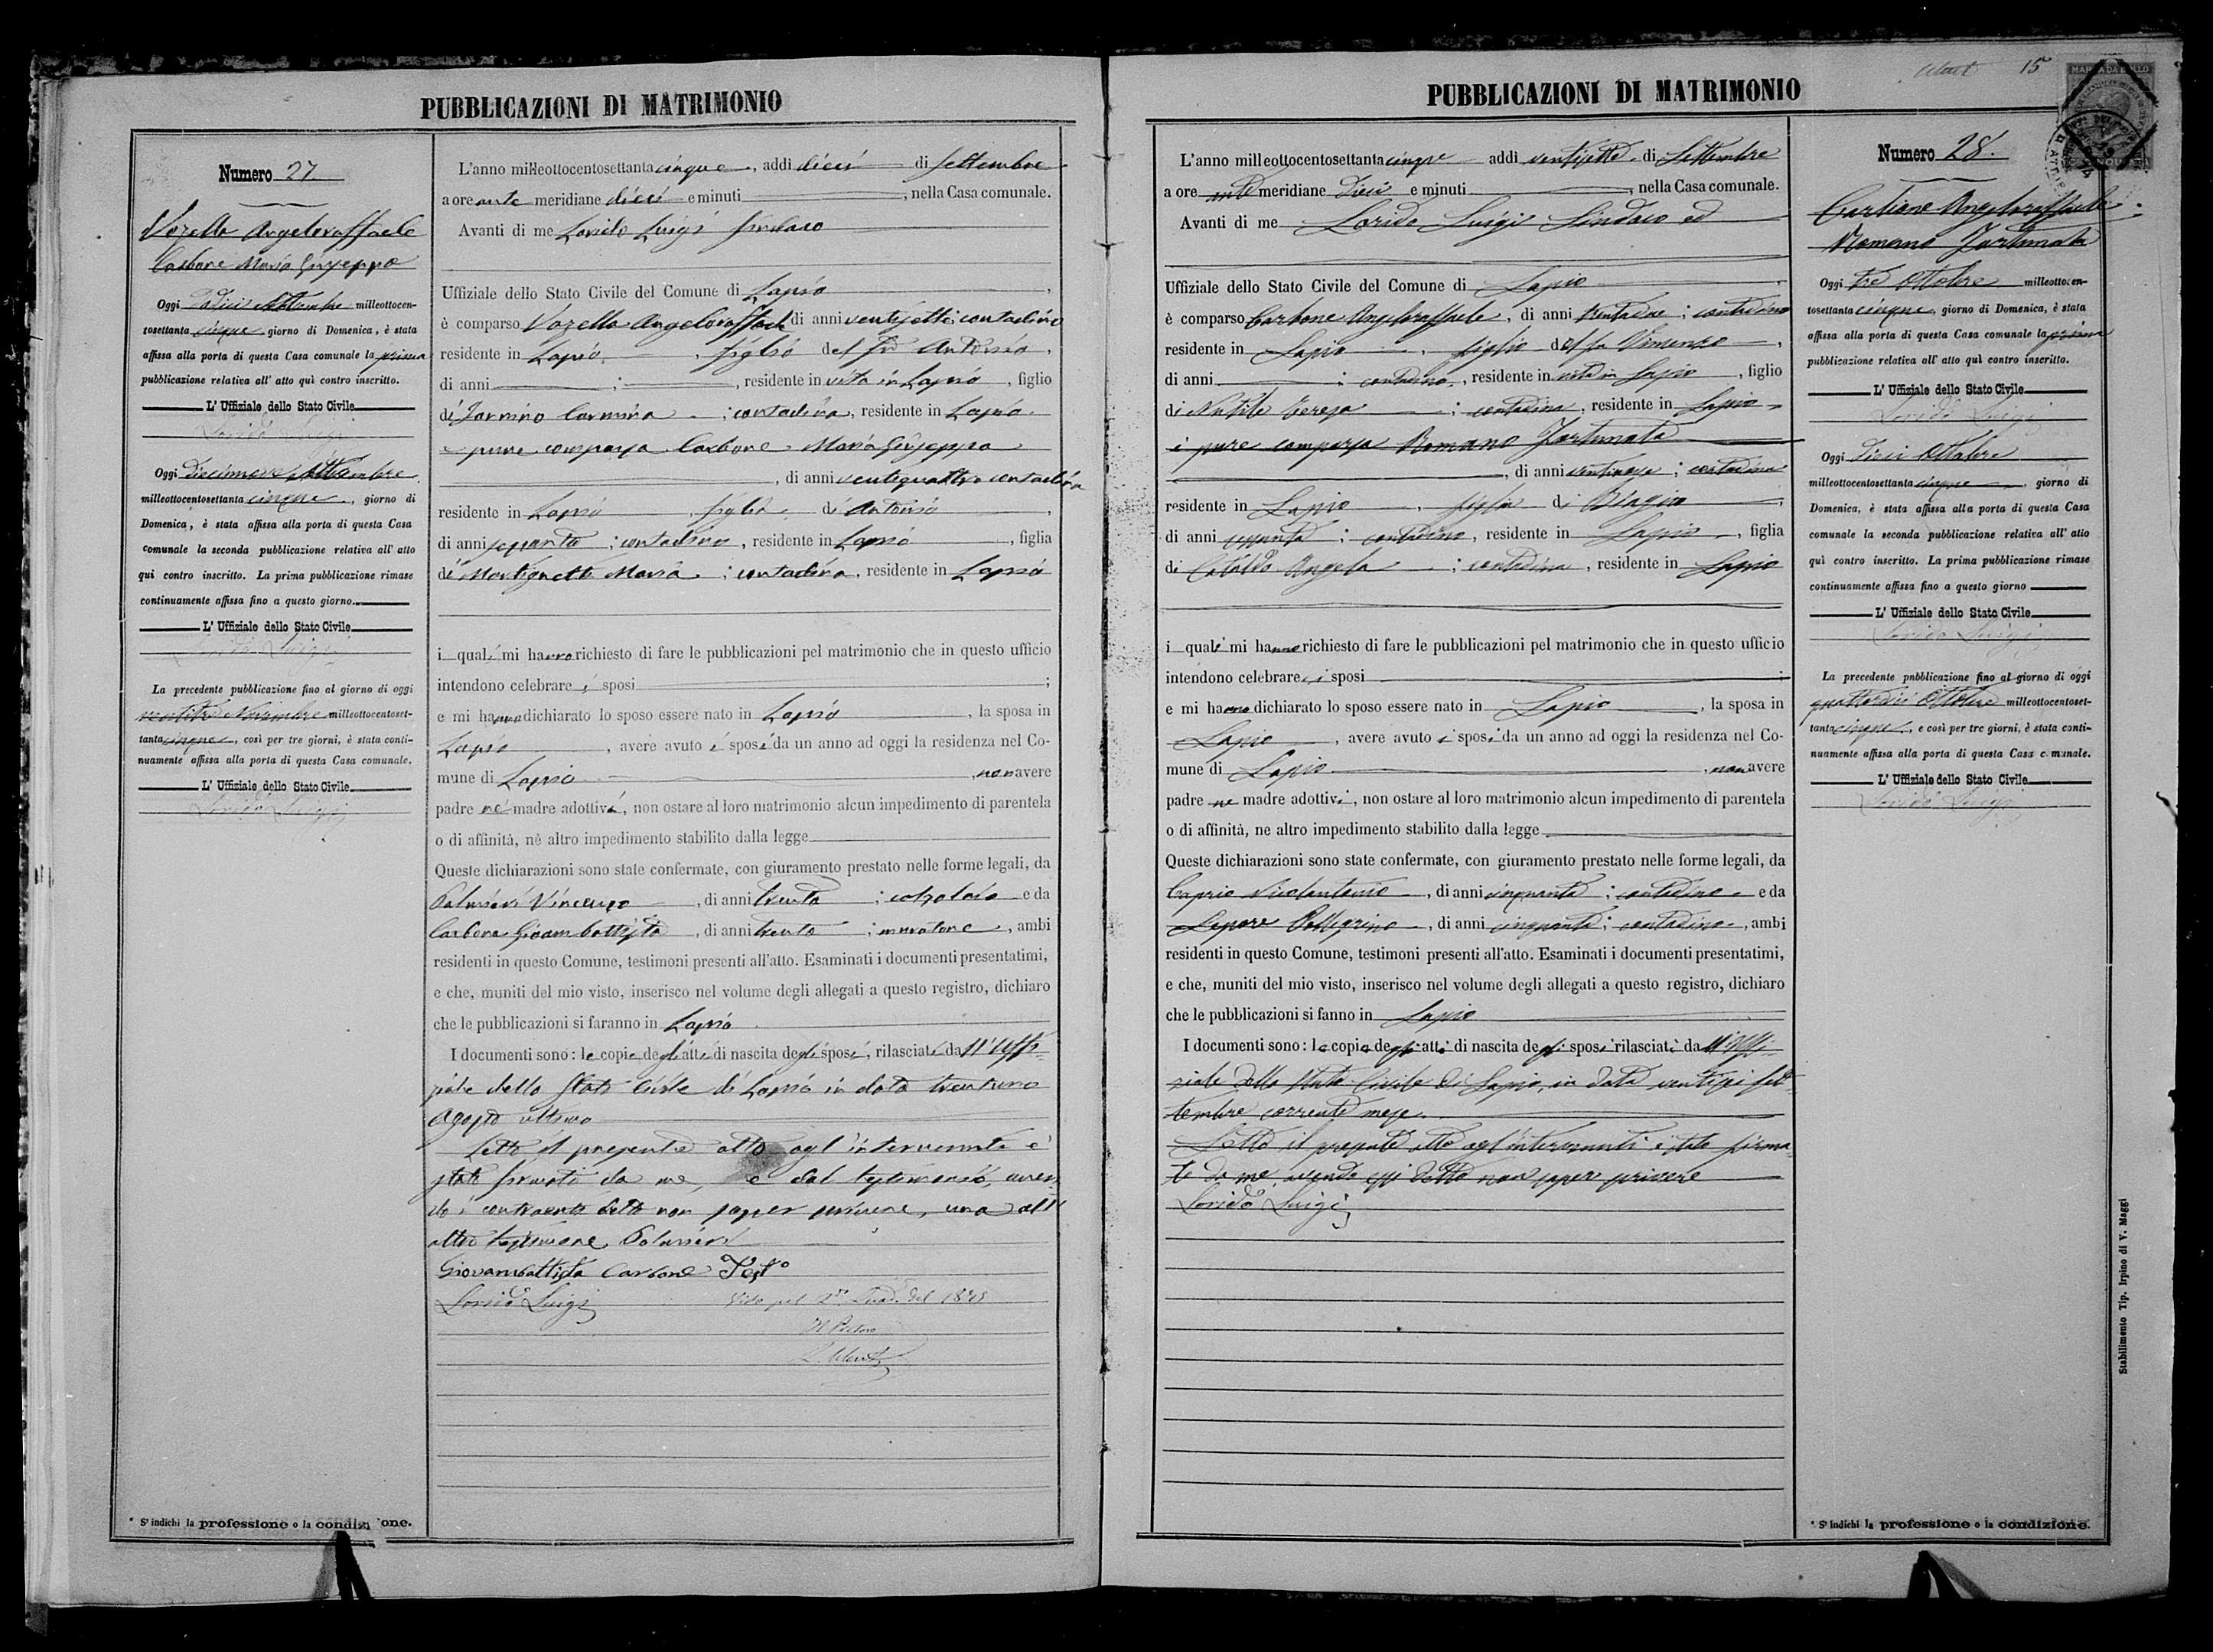 PUBBLICAZIONI DI MATRIMONIO
Numero 27.
Vozella Angeloraffaele
Carbone Maria Giuseppa
Oggi dodici Settembre milleottocen-
tosettanta cinque giorno di Domenica, è stata
affissa alla porta di questa Casa comunale la prima
pubblicazione relativa all' atto quì contro inscritto.
L' Uffiziale dello Stato Civile
Lorido Luigi
Oggi diecinove Settembre
milleottocentosettanta cinque, giorno di
Domenica, è stata affissa alla porta di questa Casa
comunale la seconda pubblicazione relativa all' atto
qui contro inscritto. La prima pubblicazione rimase
continuamente affissa fino a questo giorno.
L' Uffiziale dello Stato Civile
Lorido Luigi
La precedente pubblicazione fino al giorno di oggi
milleottocentoset-
tanta cinque, così per tre giorni, è stata conti-
nuamente affissa alla porta di questa Casa comunale.
L' Uffiziale dello Stato Civile
Lorido Luigi
* S' indichi la professione o la condizione.
L'anno milleottocentosettanta cinque, addì dieci di Settembre
a ore ante meridiane dieci e minuti , nella Casa comunale.
Avanti di me Lorido Luigi Sindaco
Uffiziale dello Stato Civile del Comune di Lapio,
è comparso Vozella Angeloraffaele di anni ventisette; contadino
residente in Lapio, figlio del fu Antonio,
di anni ; , residente in vita in Lapio, figlio
di Carmina ; contadina, residente in Lapio.
e pure comparsa Carbone Maria Giuseppa
, di anni ventiquattro contadina
residente in Lapio, figlia di Antonio,
di anni sessanta; contadino, residente in Lapio, figlia
di Martignetti Maria; contadina, residente in Lapio
i quali mi hanno richiesto di fare le pubblicazioni pel matrimonio che in questo ufficio
intendono celebrare i sposi ;
e mi hanno dichiarato lo sposo essere nato in Lapio, la sposa in
Lapio, avere avuto i sposi da un anno ad oggi la residenza nel Co-
mune di Lapio , non avere
padre nè madre adottivi, non ostare al loro matrimonio alcun impedimento di parentela
o di affinità, nè altro impedimento stabilito dalla legge
Queste dichiarazioni sono state confermate, con giuramento prestato nelle forme legali, da
Vincenzo, di anni trenta; e da
Carbone Giovambattista, di anni trenta; muratore, ambi
residenti in questo Comune, testimoni presenti all'atto. Esaminati i documenti presentatimi,
e che, muniti del mio visto, inserisco nel volume degli allegati a questo registro, dichiaro
che le pubblicazioni si faranno in Lapio
I documenti sono: le copie degli atti di nascita degli sposi, rilasciati dall'Uffi-
ziale dello Stato Civile di Lapio in data trentuno
Agosto ultimo
Letto il presente atto agl'intervenuti è
stato firmato da me, e dal testimonio, aven-
do i contraenti detto non saper scrivere, una all'
altro testimone
Giovambattista Carbone Testo
Lorido Luigi
Visto pel 2° Quad. del 1875
Il Pretore
PUBBLICAZIONI DI MATRIMONIO
15
MARCA DA BOLLO
L'anno milleottocentosettanta cinque addì ventisette di Settembre
a ore ante meridiane dieci e minuti , nella Casa comunale.
Avanti di me Lorido Luigi Sindaco ed
Uffiziale dello Stato Civile del Comune di Lapio,
è comparso Carbone Angeloraffaele, di anni trentadue; contadino
residente in Lapio, figlio del fu Vincenzo,
di anni ; contadino, residente in vita in Lapio, figlio
di Nutile Teresa ; contadina, residente in Lapio,
è pure comparsa Romano Fortunata
, di anni ventinove; contadina
residente in Lapio, figlia di Biagio,
di anni sessanta; contadino, residente in Lapio, figlia
di Cataldo Angela; contadina, residente in Lapio
i quali mi hanno richiesto di fare le pubblicazioni pel matrimonio che in questo ufficio
intendono celebrare i sposi ;
e mi hanno dichiarato lo sposo essere nato in Lapio, la sposa in
Lapio, avere avuto i sposi da un anno ad oggi la residenza nel Co-
mune di Lapio , non avere
padre ne madre adottivi, non ostare al loro matrimonio alcun impedimento di parentela
o di affinità, ne altro impedimento stabilito dalla legge
Queste dichiarazioni sono state confermate, con giuramento prestato nelle forme legali, da
Caprio Nicolantonio, di anni cinquanta; contadino e da
Lepore Pellegrino, di anni cinquanta; contadino, ambi
residenti in questo Comune, testimoni presenti all'atto. Esaminati i documenti presentatimi,
e che, muniti del mio visto, inserisco nel volume degli allegati a questo registro, dichiaro
che le pubblicazioni si fanno in Lapio
I documenti sono: le copie degli atti di nascita degli sposi rilasciati dall'Uffi-
ziale dello Stato Civile di Lapio, in data ventisei Set-
tembre corrente mese.
Letto il presente atto agl'intervenuti è stato firma-
to da me, avendo essi detto non saper scrivere
Lorido Luigi
Numero 28.
Carbone Angeloraffaele
Romano Fortunata
Oggi tre Ottobre milleottocen-
tosettanta cinque, giorno di Domenica, è stata
affissa alla porta di questa Casa comunale la prima
pubblicazione relativa all' atto quì contro inscritto.
L' Uffiziale dello Stato Civile
Lorido Luigi
Oggi dieci Ottobre
milleottocentosettanta cinque, giorno di
Domenica, è stata affissa alla porta di questa Casa
comunale la seconda pubblicazione relativa all' atto
quì contro inscritto. La prima pubblicazione rimase
continuamente affissa fino a questo giorno
L' Uffiziale dello Stato Civile
Lorido Luigi
La precedente pubblicazione fino al giorno di oggi
quattordici Ottobre milleottocentoset-
tanta cinque, e così per tre giorni, è stata conti-
nuamente affissa alla porta di questa Casa comunale.
L' Uffiziale dello Stato Civile
Lorido Luigi
* S' indichi la professione o la condizione.
Stabilimento Tip. Irpino di V. Maggi